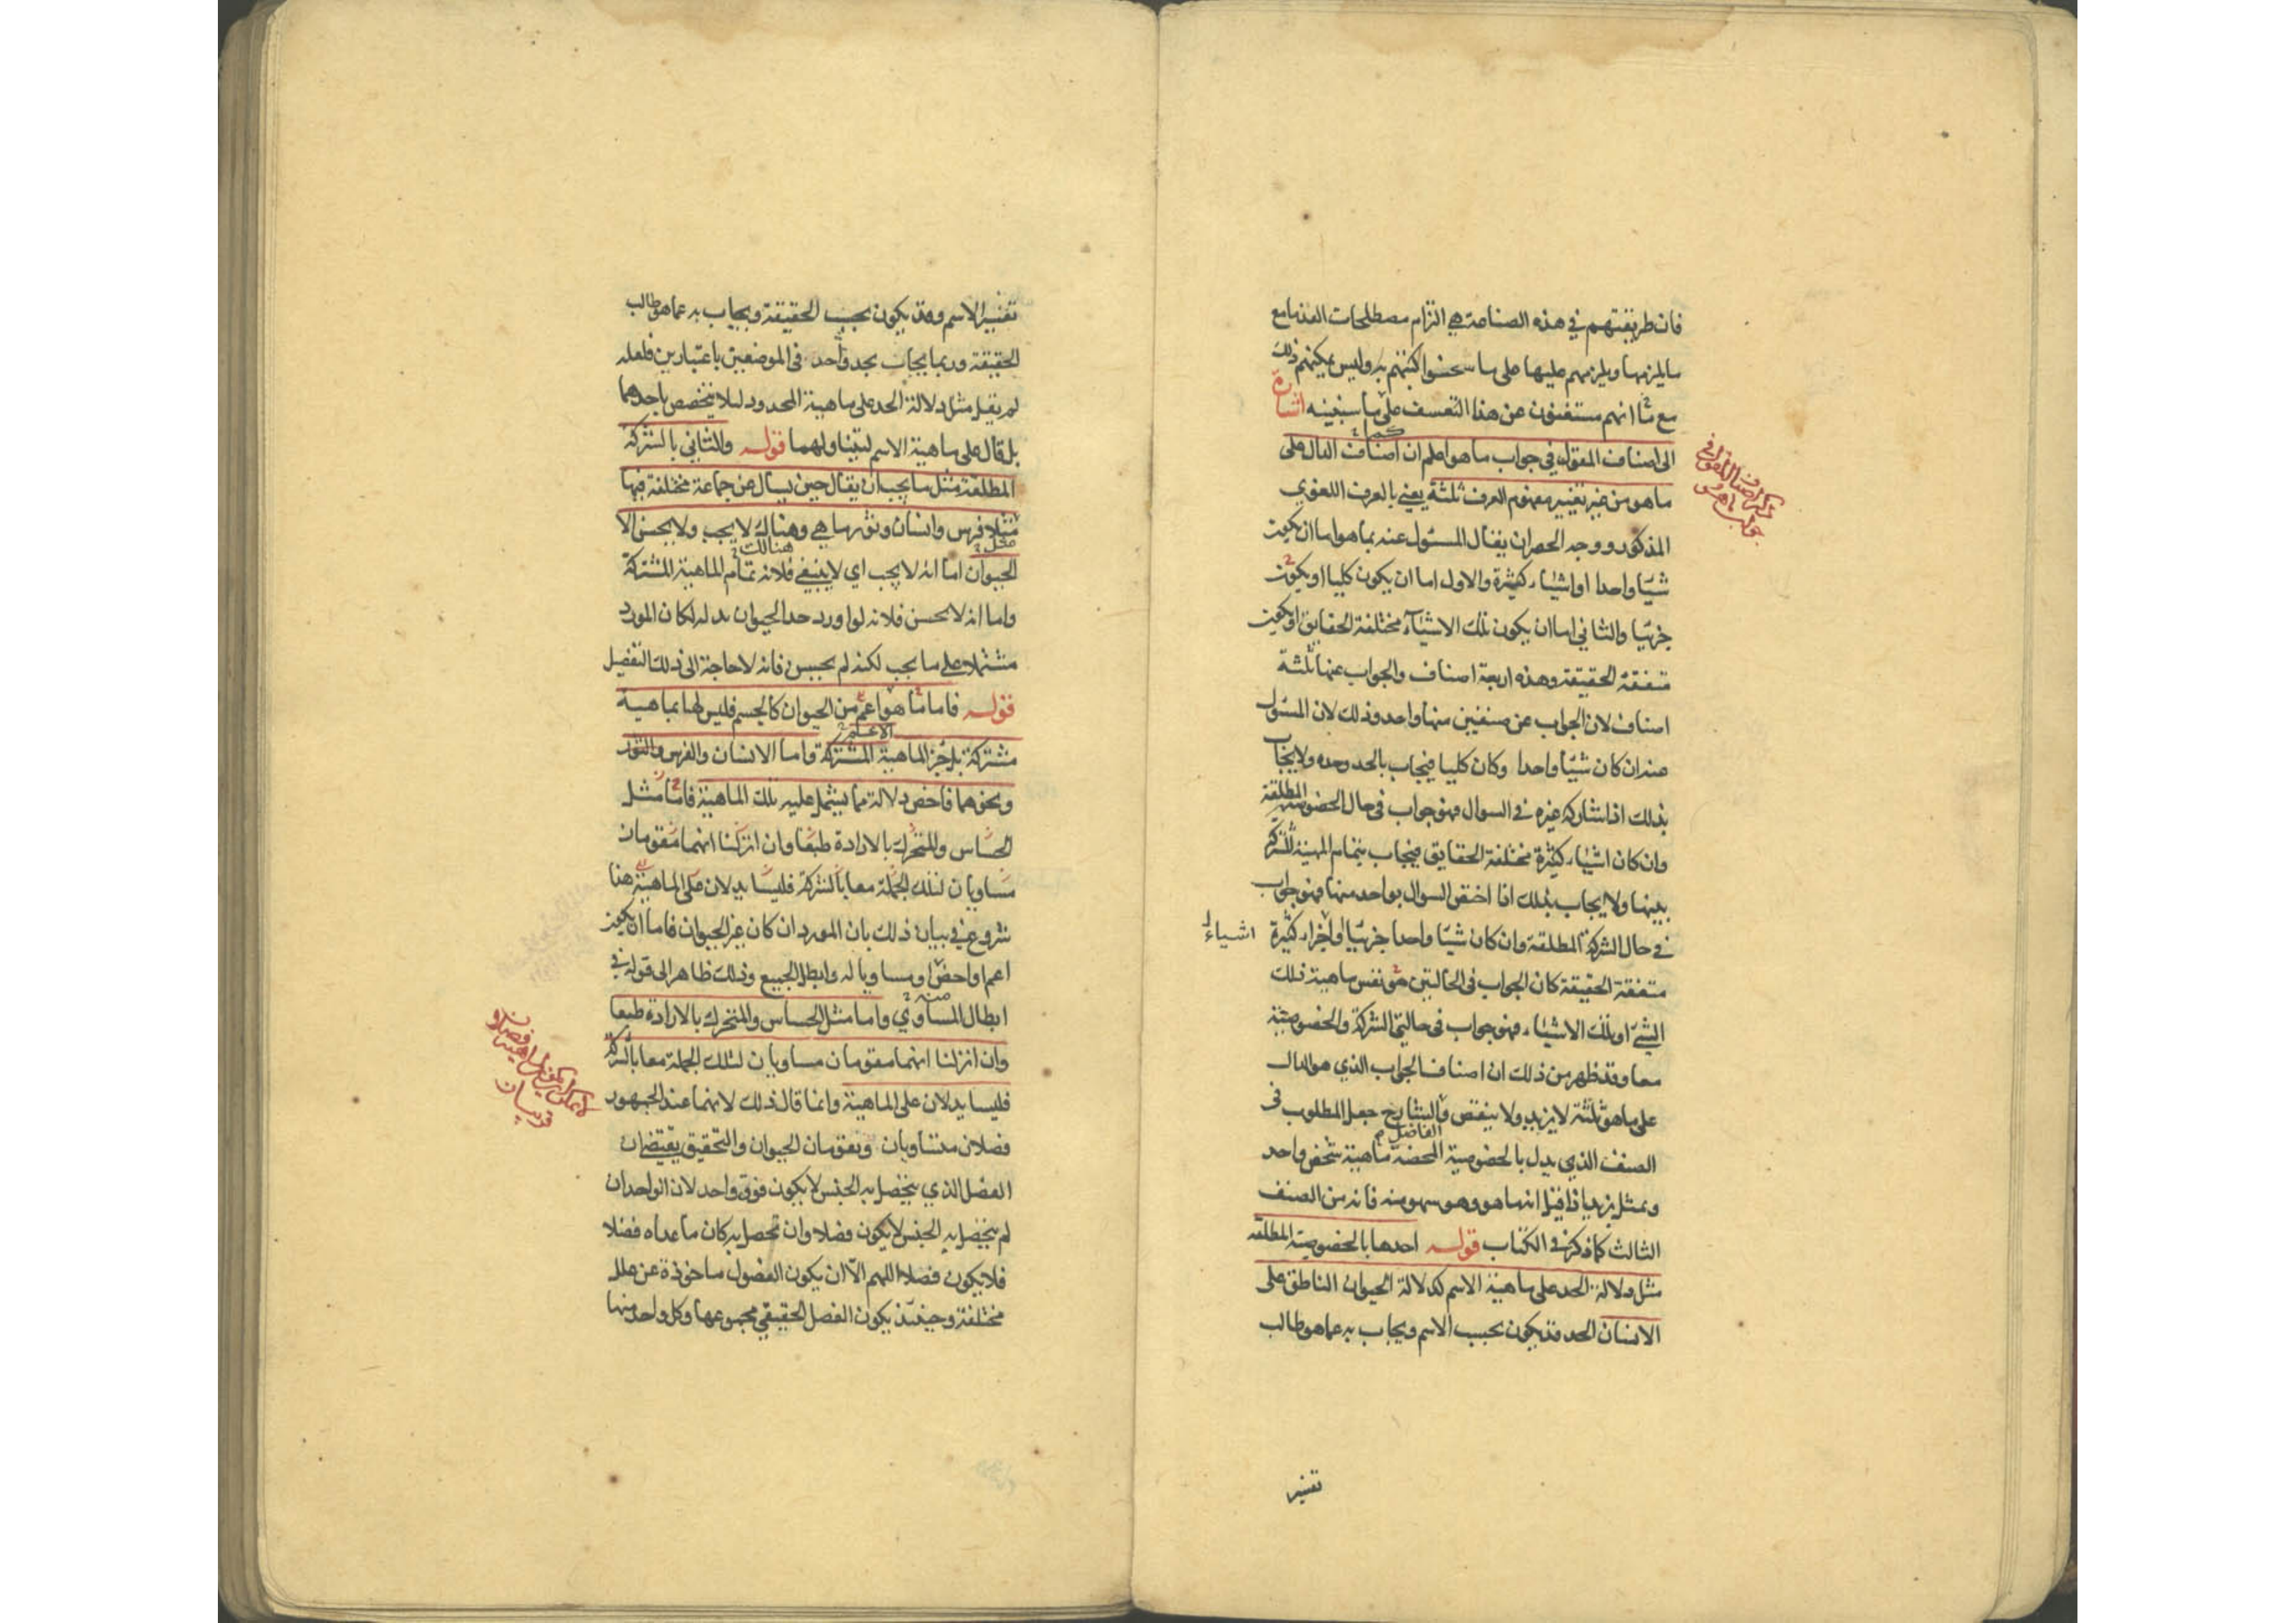 فان طريقتهم في هذه الصناعة هي التزام مصطلحات القدماء مع
ما يلزمها ويلزمهم عليها على ما شحنوا كتبهم به وليس يمكنهم ذلك
مع ما انهم مستغنون عن هذا التعسف على ما سنبينه اشارة
الى اصناف المقول في جواب ما هو اعلم ان اصناف الدال على
ما هو من غير تغيير مفهوم العرف ثلثة يعني بالعرف اللغوي
المذكور ووجه الحصر ان يقال المسئول عنه بما هو اما ان يكون
شيئا واحدا او اشياء كثيرة والاول اما ان يكون كليا او يكون
جزئيا والثاني اما ان يكون تلك الاشياء مختلفة الحقايق او يكون
متفقة الحقيقة وهذه اربعة اصناف والجواب عنها ثلثة
اصناف لان الجواب عن صنفين منها واحد وذلك لان المسئول
عنه ان كان شيئا واحدا وكان كليا فيجاب بالحد وحده ولا يجاب
بذلك اذا شاركه غيره في السوال فهو جواب في حال الخصوصية المطلقة
وان كان اشياء كثيرة مختلفة الحقايق فيجاب بتمام المهية المشتركة
بينها ولا يجاب بذلك اذا اختص السوال بواحد منها فهو جواب
في حال الشركة المطلقة وان كان شيئا واحدا جزئيا او اجزاء كثيرة
اشياء
متفقة الحقيقة كان الجواب في الحالتين هو نفس ماهية ذلك
الشئ او تلك الاشياء فهو جواب في حالتي الشركة والخصوصية
معا وقد ظهر من ذلك ان اصناف الجواب الذي هو الدال
على ما هو ثلثة لا يزيد ولا ينقص والشارح جعل المطلوب في
الفاضل
الصنف الذي يدل بالخصوصية المحضة ماهية شخص واحد
وتمثل بزيد اذا قيل انه ما هو وهو سهو منه فانه من الصنف
الثالث كما ذكر في الكتاب قوله احدها بالخصوصية المطلقة
مثل دلالة الحد على ماهية الاسم كدلالة الحيوان الناطق على
الانسان الحد قد يكون بحسب الاسم ويجاب به عما هو طالب
تفسير
تفسير الاسم وقد يكون بحسب الحقيقة ويجاب به عما هو طالب
الحقيقة وربما يجاب بحد واحد في الموضعين باعتبارين فلعله
لم يقل مثل دلالة الحد على ماهية المحدود لئلا يتخصص باحدهما
بل قال على ماهية الاسم ليتناولهما قوله والثاني بالشركة
المطلقة مثل ما يجب ان يقال حين يسال عن جماعة مختلفة فيها
مثلا فرس وانسان وثور ما هي وهناك لا يجب ولا يحسن الا
هنالك
الحيوان اما انه لا يجب اي لا ينبغي فلانه تمام الماهية المشتركة
واما انه لا يحسن فلانه لو اورد حد الحيوان بدله لكان المورد
مشتملا على ما يجب لكنه لم يحسن فانه لا حاجة الى ذلك التفصيل
قوله فاما ما هو اعم من الحيوان كالجسم فليس لها بماهية
مشتركة بل جزء الماهية المشتركة واما الانسان والفرس والثور
ونحوهما فاخص دلالة مما يشتمل عليه تلك الماهية فاما مثل
الحساس والمتحرك بالارادة طبعا وان انزلنا انهما مقومان
مساويان لتلك الجملة معا بالشركة فليسا يدلان على الماهية هنا
شروع في بيان ذلك بان المورد ان كان غير الحيوان فاما ان يكون
اعم او اخص او مساويا له وابطل الجميع وذلك ظاهر الى قوله في
ابطال المساوي واما مثل الحساس والمتحرك بالارادة طبعا
وان انزلنا انهما مقومان مساويان لتلك الجملة معا بالشركة
فليسا يدلان على الماهية وانما قال ذلك لانهما عند الجمهور
فصلان متساويان ويقومان الحيوان والتحقيق يقتضي ان
الفصل الذي يتحصل به الجنس لا يكون فوق واحد لان الواحد ان
لم يتحصل به الجنس لا يكون فصلا وان تحصل به كان ما عداه فضلا
فلا يكون فصلا اللهم الا ان يكون الفصول ماخوذة عن علل
مختلفة وحينئذ يكون الفصل الحقيقي مجموعها وكل واحد منها